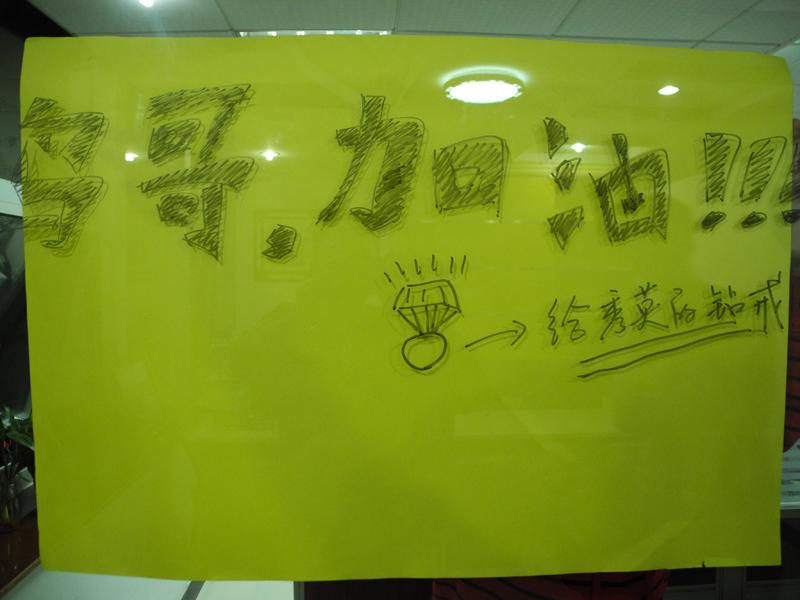 哥.加油!!!
给秀英的钻戒